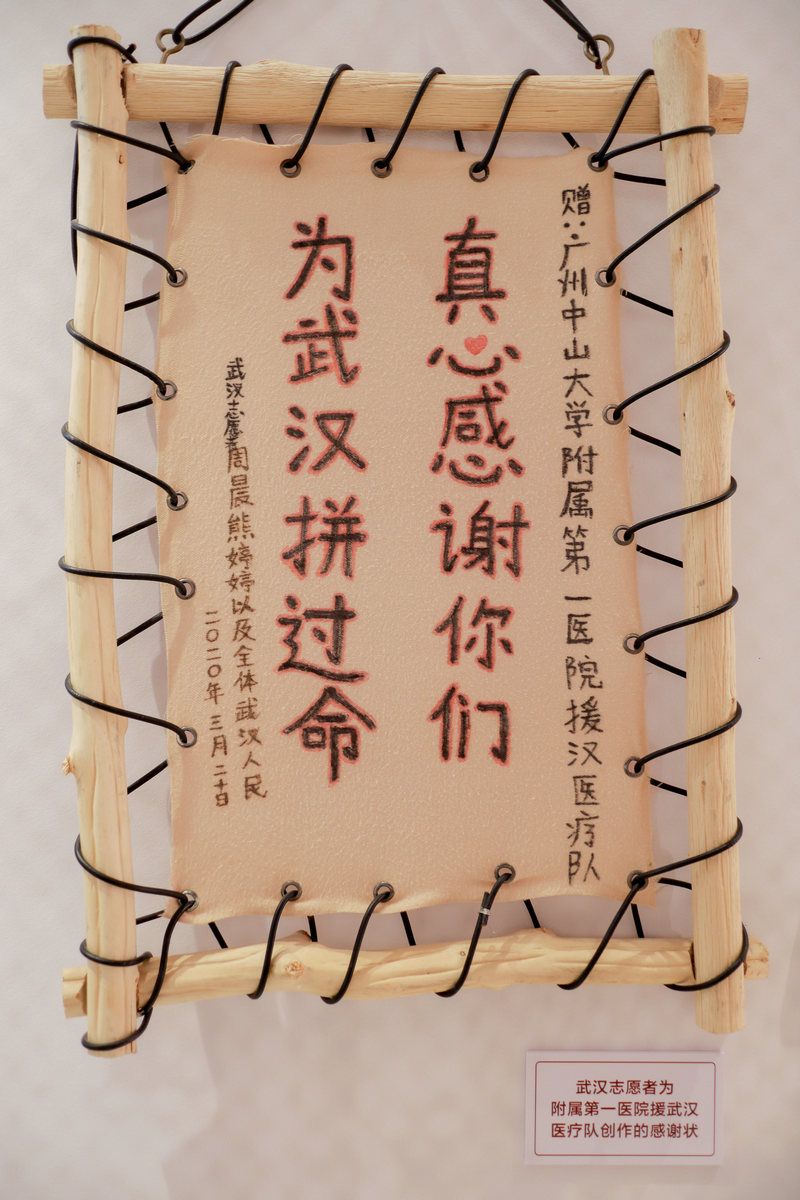 赠:广州中山大学附属第一医院援汉医疗队
真心感谢你们
为武汉拼过命
武汉志愿者周晨熊婷婷以及全体武汉人民
二〇二〇年三月二十日
武汉志愿者为
附属第一医院援武汉
医疗队创作的感谢状